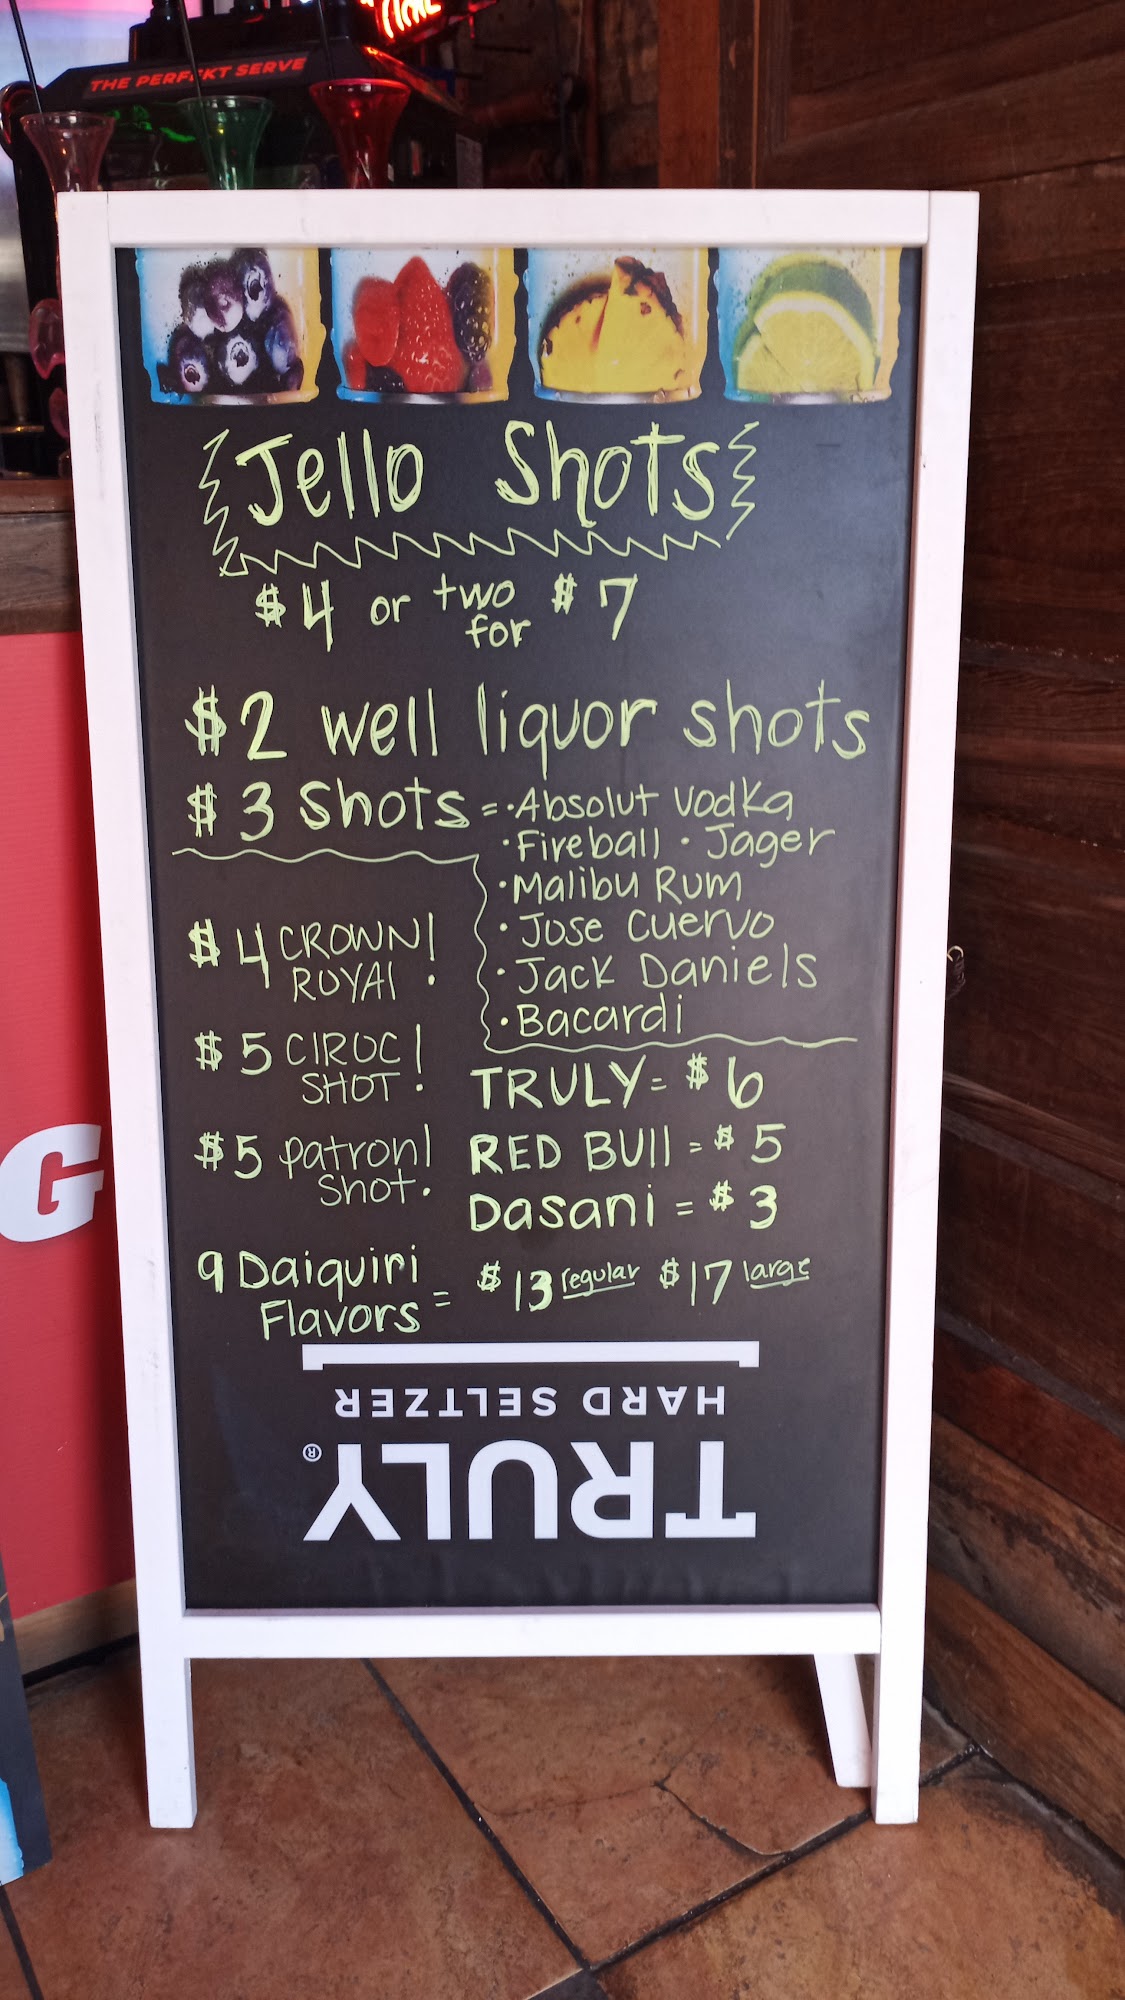 THE PERFEKT SERVE
Jello Shots
$4 or two for $7
$2 well liquor shots
$3 shots = · Absolut Vodka
· Fireball · Jager
· Malibu Rum
· Jose Cuervo
· Jack Daniels
· Bacardi
$4 CROWN!
ROYAl
$5 CIROC!
SHOT
$5 patron!
shot.
TRULY = $6
RED BUll = $5
Dasani = $3
9 Daiquiri
Flavors = $13 regular $17 large
HARD SELTZER
TRULY®
G